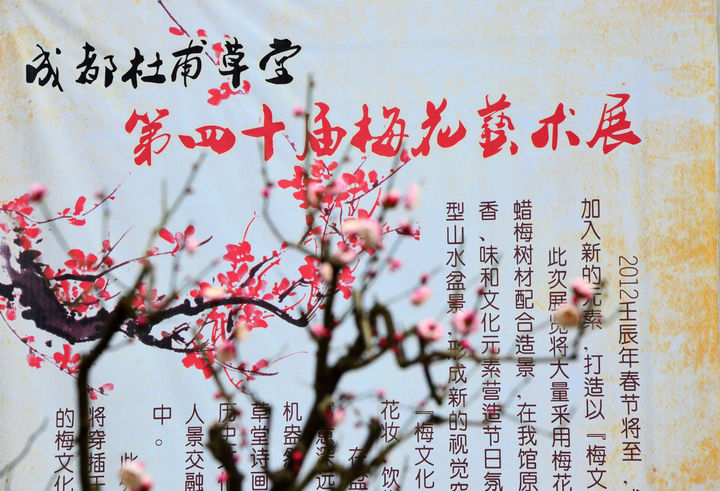 成都杜甫草堂
第四十届梅花藝术展
2012壬辰年春节将至，
加入新的元素，打造以『梅文
此次展览将大量采用梅花
蜡梅树材配合造景，在我馆原
香、味和文化元素营造节日氛
型山水盆景，形成新的视觉突
『梅文化
花妆、饮
在
意深远
机盎然
草堂诗画
历史文化
人景交融
中。
此
将穿插于
的梅文化